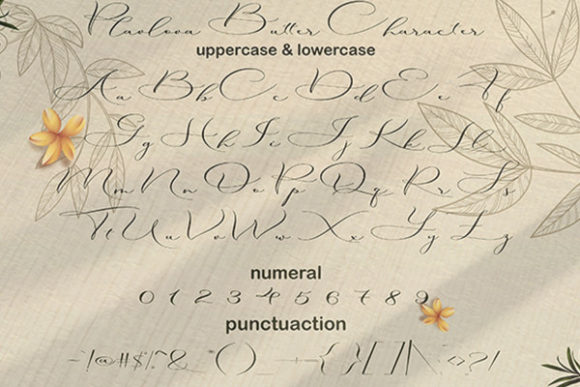 Butter Character
uppercase & lowercase
Aa Bb Cc Dd Ee Ff
Gg Hh Ii Jj Kk Ll
Mm Nn Oo Pp Qq Rr Ss
Tt Uu Vv Ww Xx Yy Zz
numeral
0 1 2 3 4 5 6 7 8 9
punctuaction